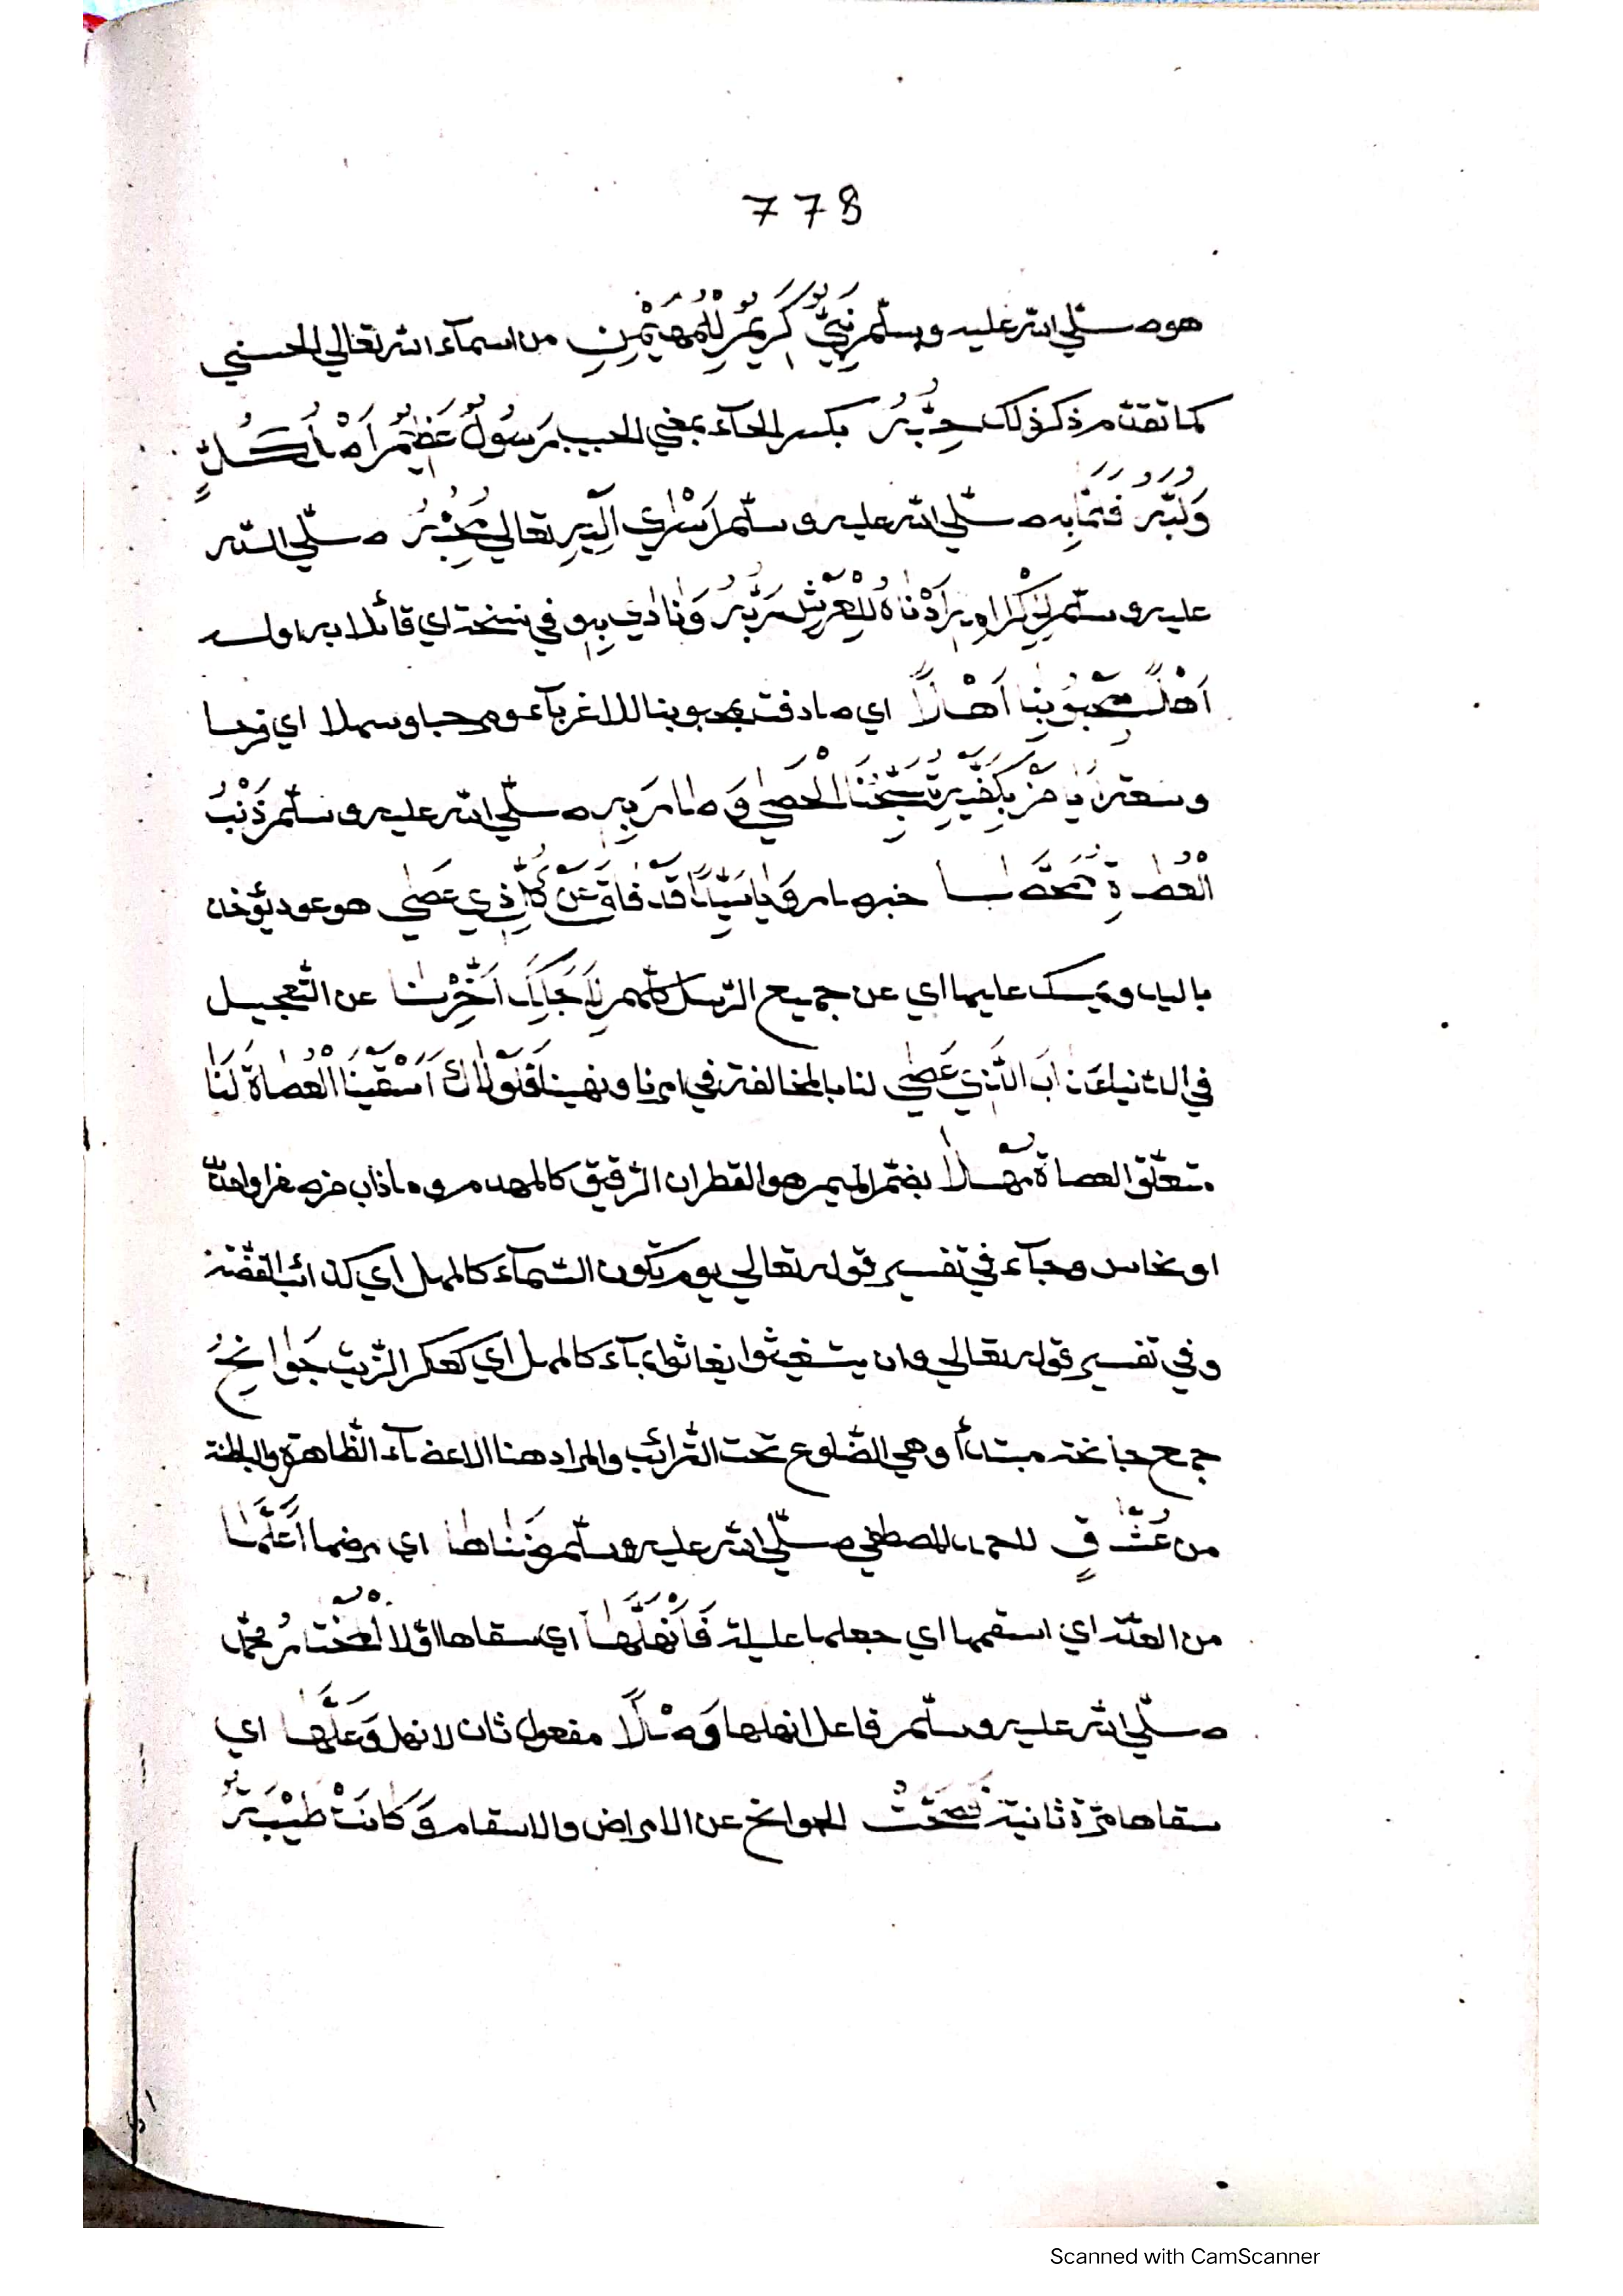 778
هو صلّي الله عليه وسلّم نَبِيٌّ كَرِيْمٌ لِلْمُهَيْمِنِ من اسمآء الله تعالي الحسني
كما تقدّم ذكر ذلك حِبُّهُ بكسر الحآء بمعني الحبيب رَسُوْلٌ عَظِيْمٌ اَصْلُ كُلٍّ
وَلُبُّهُ فَثَمَّ بِهِ صلّي الله عليه وسلّم اَسْرٰي اِلَيْهِ تعالي مُحِبُّهُ صلّي الله
عليه وسلّم لِاِكْرَامِهِ اَدْنَاهُ لِلْعَرْشِ رَبُّهُ وَنَادٰي بِهِ وفي نسخة اي قائلا به اوله
اَهْلًا بِمَحْبُوْبِنَا اَهْلًا اي صادفت محبوبنا اهلا لا غربآء ومرحبا وسهلا اي فرحا
وسعة يَا مَنْ بِكَفَّيْهِ تُسَبِّحْنَ الْحَصٰي وَ صار بِهِ صلّي الله عليه وسلّم ذَنْبُ
الْعُصَاةِ مُمَحَّصَا خبر صار وَ يَا سَيِّدًا قَدْ فَاقَ عَنْ كُلِّ ذِي عَصٰي هو عود يؤخذ
باليد ويمسك عليها اي عن جميع الرّسل كلّهم لِاَجَلِكَ اَخَّرْنَا عن التّعجيل
في الدّنيا عَذَابَ الَّذِيْ عَصٰي لنا بالمخالفة في امرنا ونهينا فَلَوْلَاكَ اَسْقَيْنَا الْعُصَاةَ لَنَا
متعلّق العصاة مُهْلًا بضمّ الميم هو القطران الرّقيق كالمهد وما ذاب من صفر او حديد
او نحاس وجآء في تفسير قوله تعالي يوم تكون السّمآء كالمهل اي كذائب الفضّة
وفي تفسير قوله تعالي وان يستغيثوا يغاثوا بمآء كالمهل اي كعكر الزّيت جَوَانِحُ
جمع جانحة مبتدأ وهي الضّلوع تحت التّرائب والمراد هنا الاعضآء الظّاهرة والباطنة
من عُشَّاقٍ للحبيب المصطفي صلّي الله عليه وسلّم ضَنَاهَا اي مرضها اَعَلَّهَا
من العلّة اي اسقمها اي جعلها عليلة فَاَنْهَلَهَا اي سقاها اوّلا الْمُخْتَارُ محمّد
صلّي الله عليه وسلّم فاعل انهلها وَصْلًا مفعول ثان لانهل وَعَلَّهَا اي
سقاها مرّة ثانية فَصَحَّتْ الجوانح عن الامراض والاسقام وَكَانَتْ طَيْبَةٌ
Scanned with CamScanner